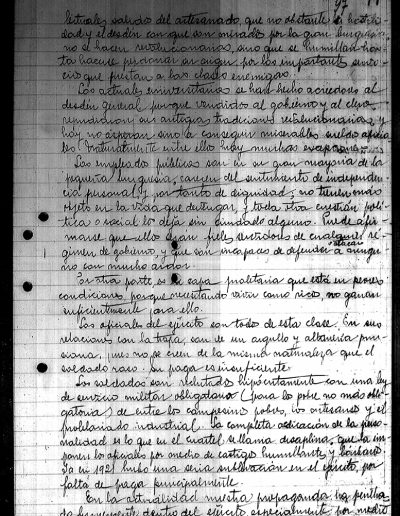 97
lectuales salidos del artesanado, que no obstante la hostili-
dad y el desdén con que son mirados por la gran burguesía
no se hacen revolucionarios, sino que se humillan has-
ta hacerse perdonar su origen por los importantes servi-
cios que prestan a las clases enemigas.
Los actuales universitarios se han hecho acreedores al
desdén general, porque vendidos al gobierno y al clero,
repudiaron sus antiguas tradiciones revolucionarias, y
hoy no aspiran sino a conseguir miserables sueldos oficia-
les. Naturalmente entre ellos hay muchas excepciones.
Los empleados públicos son en su gran mayoría de la
pequeña burguesía, carecen del sentimiento de independen-
cia personal y por tanto de dignidad; no tienen más
objeto en la vida que devengar, y toda otra cuestión polí-
tica o social los deja sin cuidado alguno. Puede afir-
marse que ellos son fieles servidores de cualquier ré-
gimen de gobierno, y que son incapaces de defender a ningu-
no con mucho ardor.
Por otra parte es la capa proletaria que está en peores
condiciones, porque necesitando vivir como ricos, no ganan
suficientemente para ello.
Los oficiales del ejército son todos de esta clase. En sus
relaciones con la tropa, son de un orgullo y altanería pru-
siana, pues no se creen de la misma naturaleza que el
soldado raso. Su paga es insuficiente.
Los soldados son reclutados hipócritamente con una ley
de servicio militar obligatorio (para los pobres no más obli-
gatoria) de entre los campesinos pobres, los artesanos y el
proletariado industrial. La completa abdicación de la perso-
nalidad es lo que en el cuartel se llama disciplina, que la im-
ponen los oficiales por medio de castigos humillantes y bárbaros.
Ya en 1921 hubo una seria sublevación en el ejército, por
falta de paga principalmente.
En la actualidad nuestra propaganda ha penetra-
do fuertemente dentro del ejército especialmente por medio